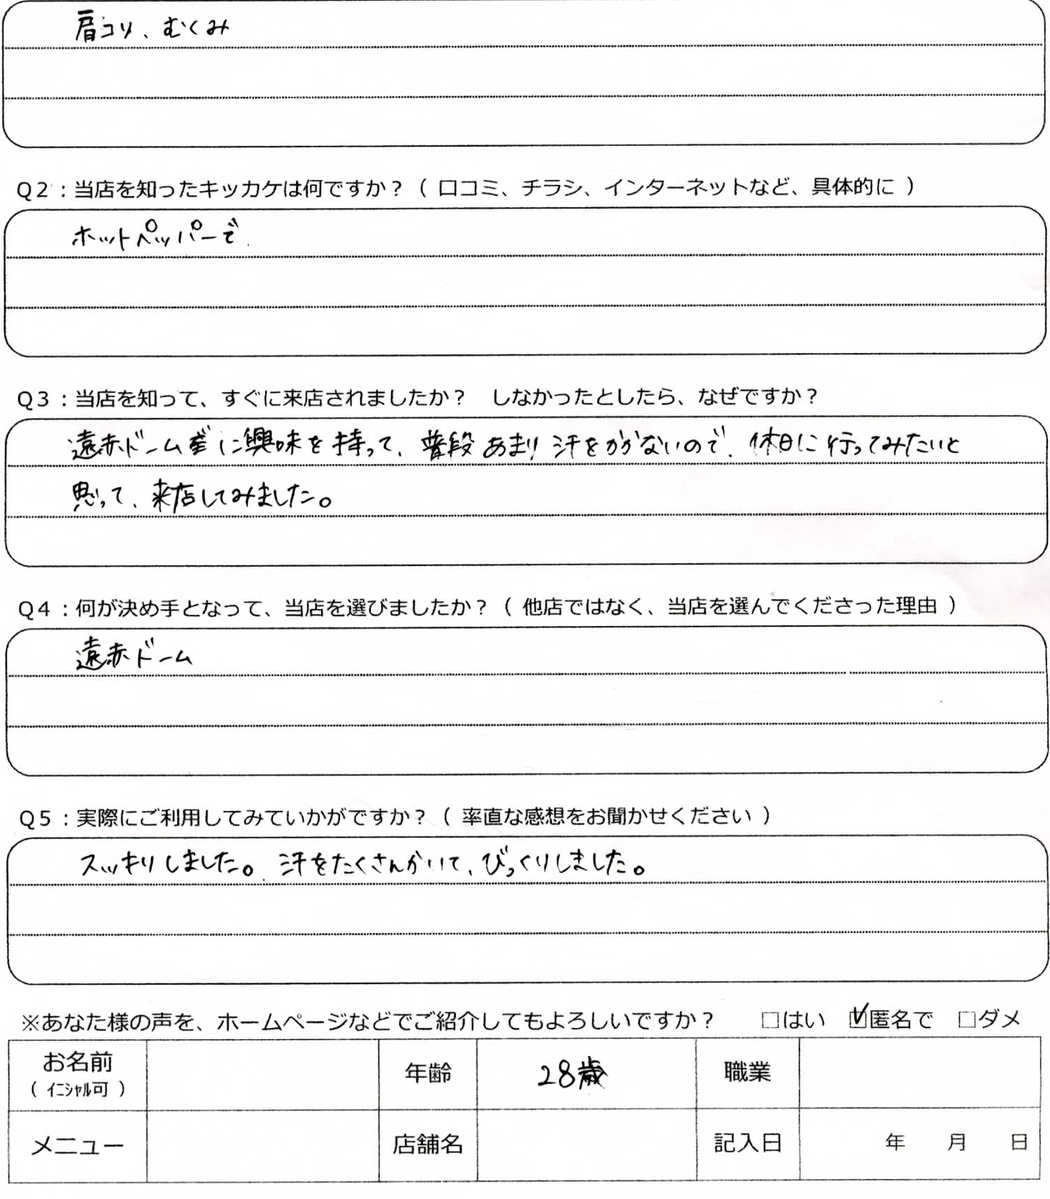 肩コリ、むくみ
Q2：当店を知ったキッカケは何ですか？（ 口コミ、チラシ、インターネットなど、具体的に ）
ホットペッパーで
Q3：当店を知って、すぐに来店されましたか？　しなかったとしたら、なぜですか？
遠赤ドームに興味を持って、普段あまり汗をかかないので、休日に行ってみたいと
思って、来店してみました。
Q4：何が決め手となって、当店を選びましたか？（ 他店ではなく、当店を選んでくださった理由 ）
遠赤ドーム
Q5：実際にご利用してみていかがですか？（ 率直な感想をお聞かせください ）
スッキリしました。汗をたくさんかいて、びっくりしました。
※あなた様の声を、ホームページなどでご紹介してもよろしいですか？　□はい　☑匿名で　□ダメ
お名前　年齢　28歳　職業
（ ｲﾆｼｬﾙ可 ）
メニュー　店舗名　記入日　年　月　日